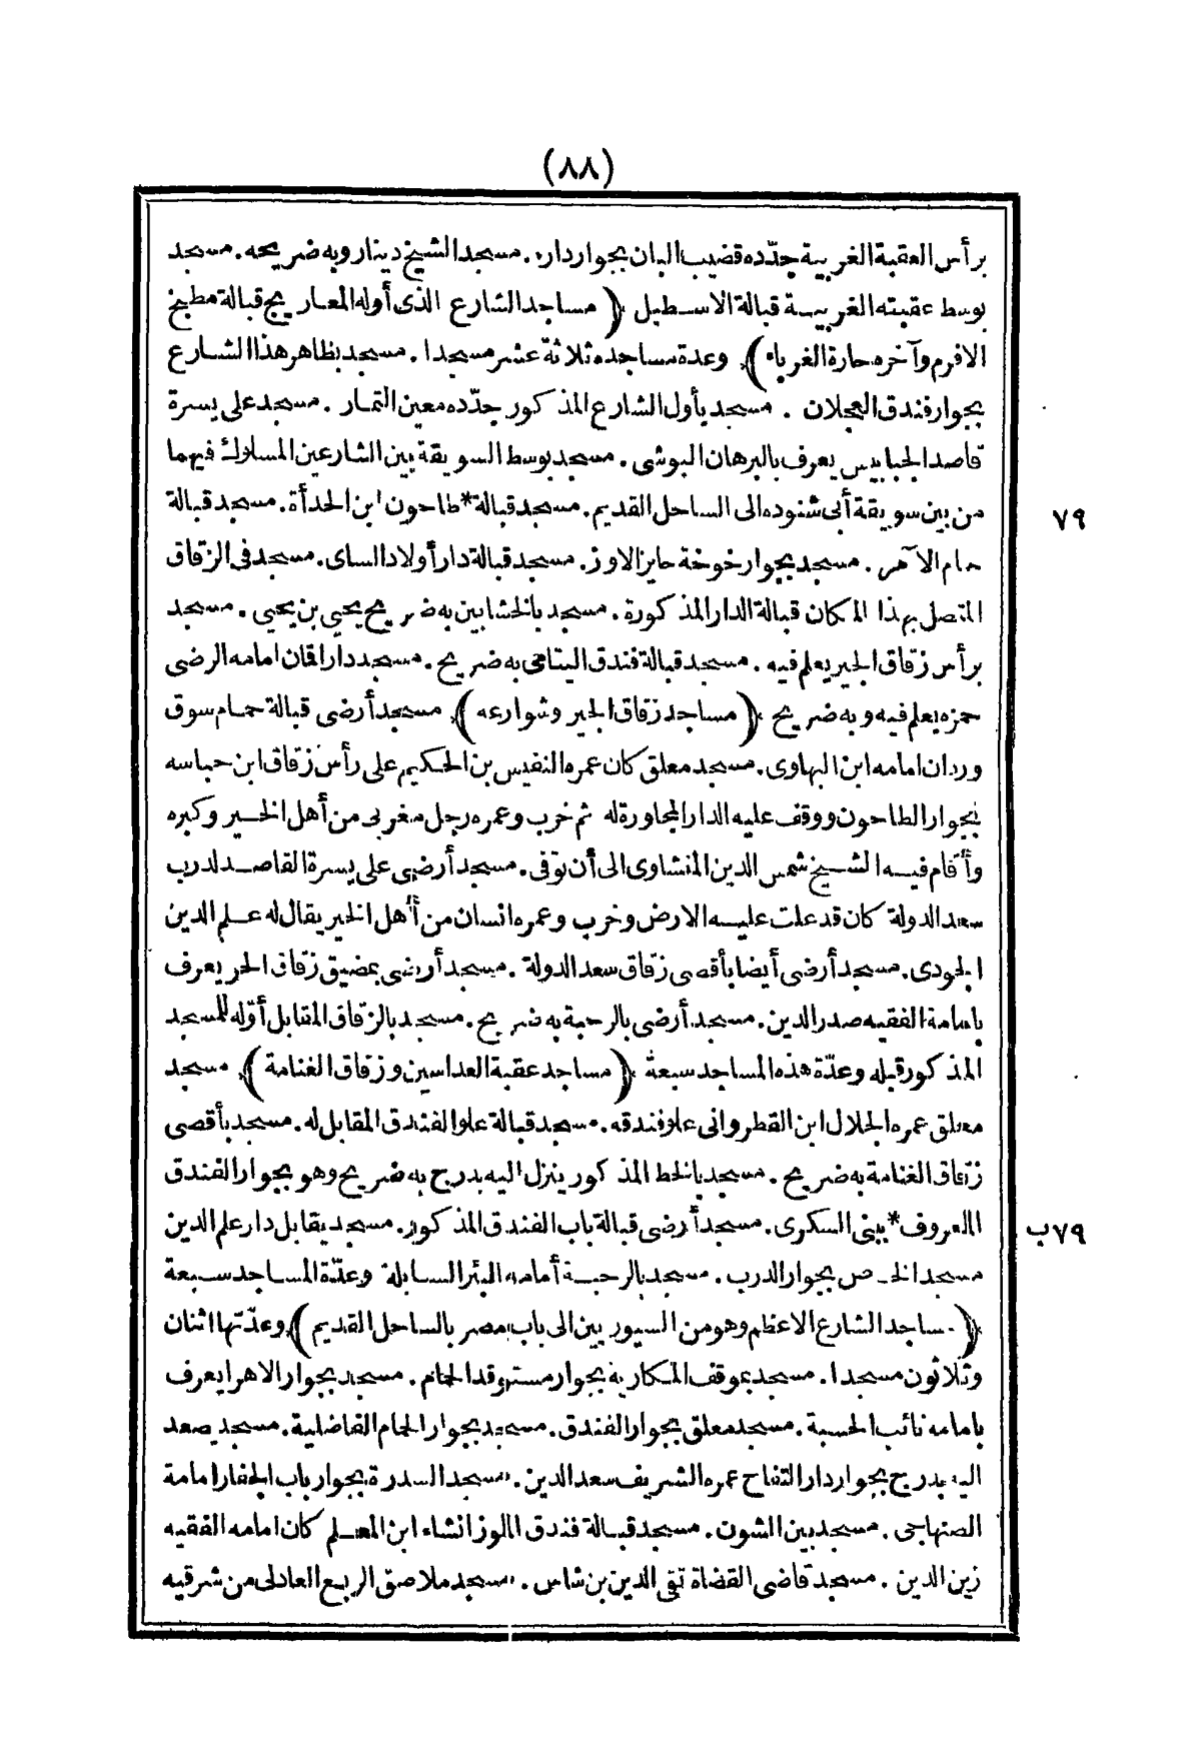 (٨٨)
برأس العقبة الغربية جدّده قضيب البان بجوار داره . مسجد الشيخ دينار وبه ضريحه . مسجد
بوسط عقبته الغربيـة قبالة الاسطبل ﴿ مساجد الشارع الذى أوله المعاريج قبالة مطبخ
الافرم وآخره حارة الغرباء ﴾ وعدة مساجده ثلاثة عشر مسجدا . مسجد بظاهر هذا الشارع
بجوار فندق العجلان . مسجد بأول الشارع المذكور جدّده معين التمار . مسجد على يسرة
قاصد الجبابيس يعرف بالبرهان البوشى . مسجد بوسط السويقة بين الشارعين المسلوك فيهما
من بين سويقة أبى شنوده الى الساحل القديم . مسجد قبالة * طاحون ابن الحدأة . مسجد قبالة
٧٩
حمام الآمر . مسجد بجوار خوخة حايز الاوز . مسجد قبالة دار أولاد الساى . مسجد فى الزقاق
المتصل بهذا المكان قبالة الدار المذكورة . مسجد بالخشابين به ضريح يحيى بن يحيى . مسجد
برأس زقاق الجير يعلم فيه . مسجد قبالة فندق اليتامى به ضريح . مسجد دار القان امامه الرضى
حمزه يعلم فيه وبه ضريح ﴿ مساجد زقاق الجير وشوارعه ﴾ مسجد أرضى قبالة حمام سوق
وردان امامه ابن البهاوى . مسجد معلق كان عمره النفيس بن الحكيم على رأس زقاق ابن حباسه
بجوار الطاحون ووقف عليه الدار المجاورة له ثم خرب وعمره رجل مغربى من أهل الخير وكبره
وأقام فيه الشيخ شمس الدين المنشاوى الى أن توفى . مسجد أرضى على يسرة القاصد لدرب
سعد الدولة كان قد علت عليه الارض وخرب وعمره انسان من أهل الخير يقال له علم الدين
الجودى . مسجد أرضى أيضا بأقصى زقاق سعد الدولة . مسجد أرضى بمضيق زقاق الحر يعرف
بامامة الفقيه صدر الدين . مسجد أرضى بالرحبة به ضريح . مسجد بالزقاق المقابل أوّله للمسجد
المذكور قبله وعدّة هذه المساجد سبعة ﴿ مساجد عقبة العداسين وزقاق الغنامة ﴾ مسجد
معلق عمره الجلال ابن القطروانى علو فندقه . مسجد قبالة علو الفندق المقابل له . مسجد بأقصى
زقاق الغنامة به ضريح . مسجد بالخط المذكور ينزل اليه بدرج به ضريح وهو بجوار الفندق
المعروف * ببنى السكرى . مسجد أرضى قبالة باب الفندق المذكور . مسجد يقابل دار علم الدين
٧٩ب
مسجد الخـص بجوار الدرب . مسجد بالرحبـة أمامه البئر السابلة وعدّة المساجد سبعة
﴿ مساجد الشارع الاعظم وهو من السيوريين الى باب مصر بالساحل القديم ﴾ وعدّتها اثنان
وثلاثون مسجدا . مسجد بموقف المكارية بجوار مستوقد الحمام . مسجد بجوار الاهرا يعرف
بامامه نائب الحسبة . مسجد معلق بجوار الفندق . مسجد بجوار الحمام الفاضلية . مسجد يصعد
اليه بدرج بجوار دار التفاح عمره الشريف سعد الدين . مسجد السدرة بجوار باب الجفار امامة
الصنهاجى . مسجد بين الشون . مسجد قبالة فندق اللوز انشاء ابن المعلم كان امامه الفقيه
زين الدين . مسجد قاضى القضاة تقى الدين بن شاس . مسجد ملاصق الربع العادلى من شرقيه